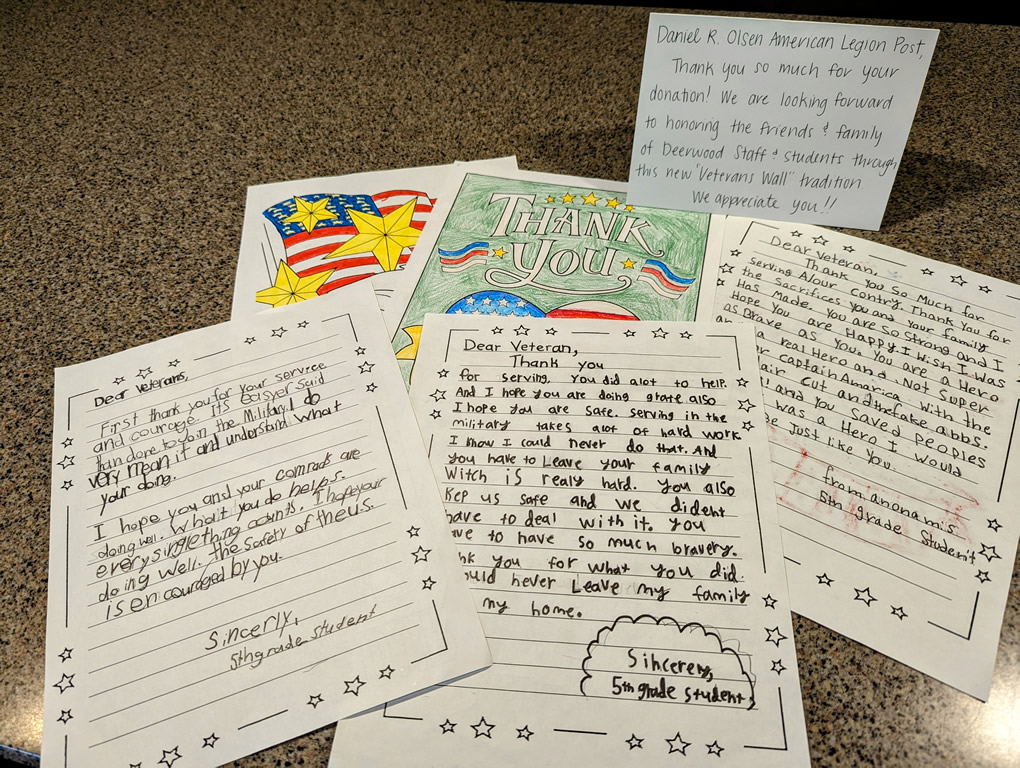 Daniel R. Olsen American Legion Post,
Thank you so much for your
donation! We are looking forward
to honoring the friends & family
of Deerwood Staff & students through
this new "Veterans Wall" tradition.
We appreciate you!!
THANK
You
Dear Veterans,
First thank you for your service
and courage. It's easyer said
than done to join the Military. I do
very mean it and understand what
your doing.
I hope you and your comrads are
doing well. What you do helps.
every single thing counts. I hope your
doing well. The safety of the U.S.
is encouraged by you.
Sincerly,
5th grade student
Dear Veteran,
Thank you
for serving. You did alot to help.
And I hope you are doing grate also
I hope you are safe. serving in the
military takes alot of hard work
I know I could never do that. And
you have to Leave your family
Witch is realy hard. you also
keep us safe and we dident
have to deal with it. you
have to have so much bravery.
you for what you did.
never Leave my family
my home.
Sincerery,
5th grade student
Dear Veteran,
Thank You So Much for
serving Alour contry. Thank You for
the Sacrifices You and Your family
Has Made. You are so Strong and I
Hope You are Happy. I Wish I was
as Brave as You. You are a Hero
a real Hero and. Not Super
captain America. With the
cut and the fake abbs.
and You Saved Peoples
was a Hero I would
Be Just like You.
from anonamis
5th grade Student